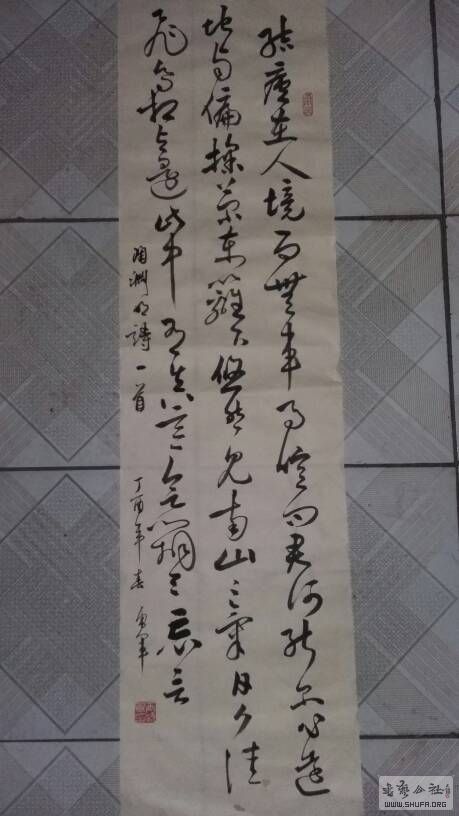 结廬在人境而無車马喧问君何能尔心遠
地自偏採菊東籬下悠然見南山〻氣日夕佳
飛鸟相与還此中有真意欲辨已忘言
陶渊明詩一首 丁酉年春
書藝公社
WWW.SHUFA.ORG